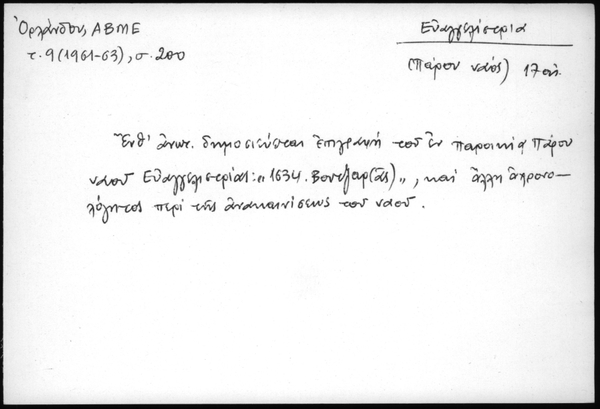 Ὀρλάνδου, ΑΒΜΕ
τ. 9 (1961-63), σ. 200
Εὐαγγελίστρια
(Πάρου ναός) 17 αἰ.
Ἔνθ' ἀνωτ. δημοσιεύεται ἐπιγραφή τοῦ ἐν Παροικίᾳ Πάρου
ναοῦ Εὐαγγελιστρίας: «1634. Βουτζαρ(ᾶς)», καί ἄλλη ἀχρονο-
λόγητος περί τῆς ἀνακαινίσεως τοῦ ναοῦ.